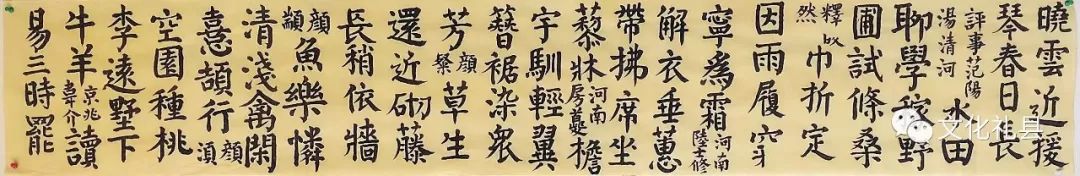 曉雲近援
琴春日長
評事范陽湯清河水田
聊學稼野
圃試條桑
釋皎然巾折定
因雨履穿
寧為霜河南陸士修
解衣垂蕙
帶拂席坐
藜牀河南房夔檐
宇馴輕翼
簪裾染衆
芳顏粲草生
還近砌藤
長稍依牆
顏顓魚樂憐
清淺禽閑
憙頡行顏湏
空園種桃
李遠墅下
牛羊京兆韋介讀
易三時罷
文化礼县